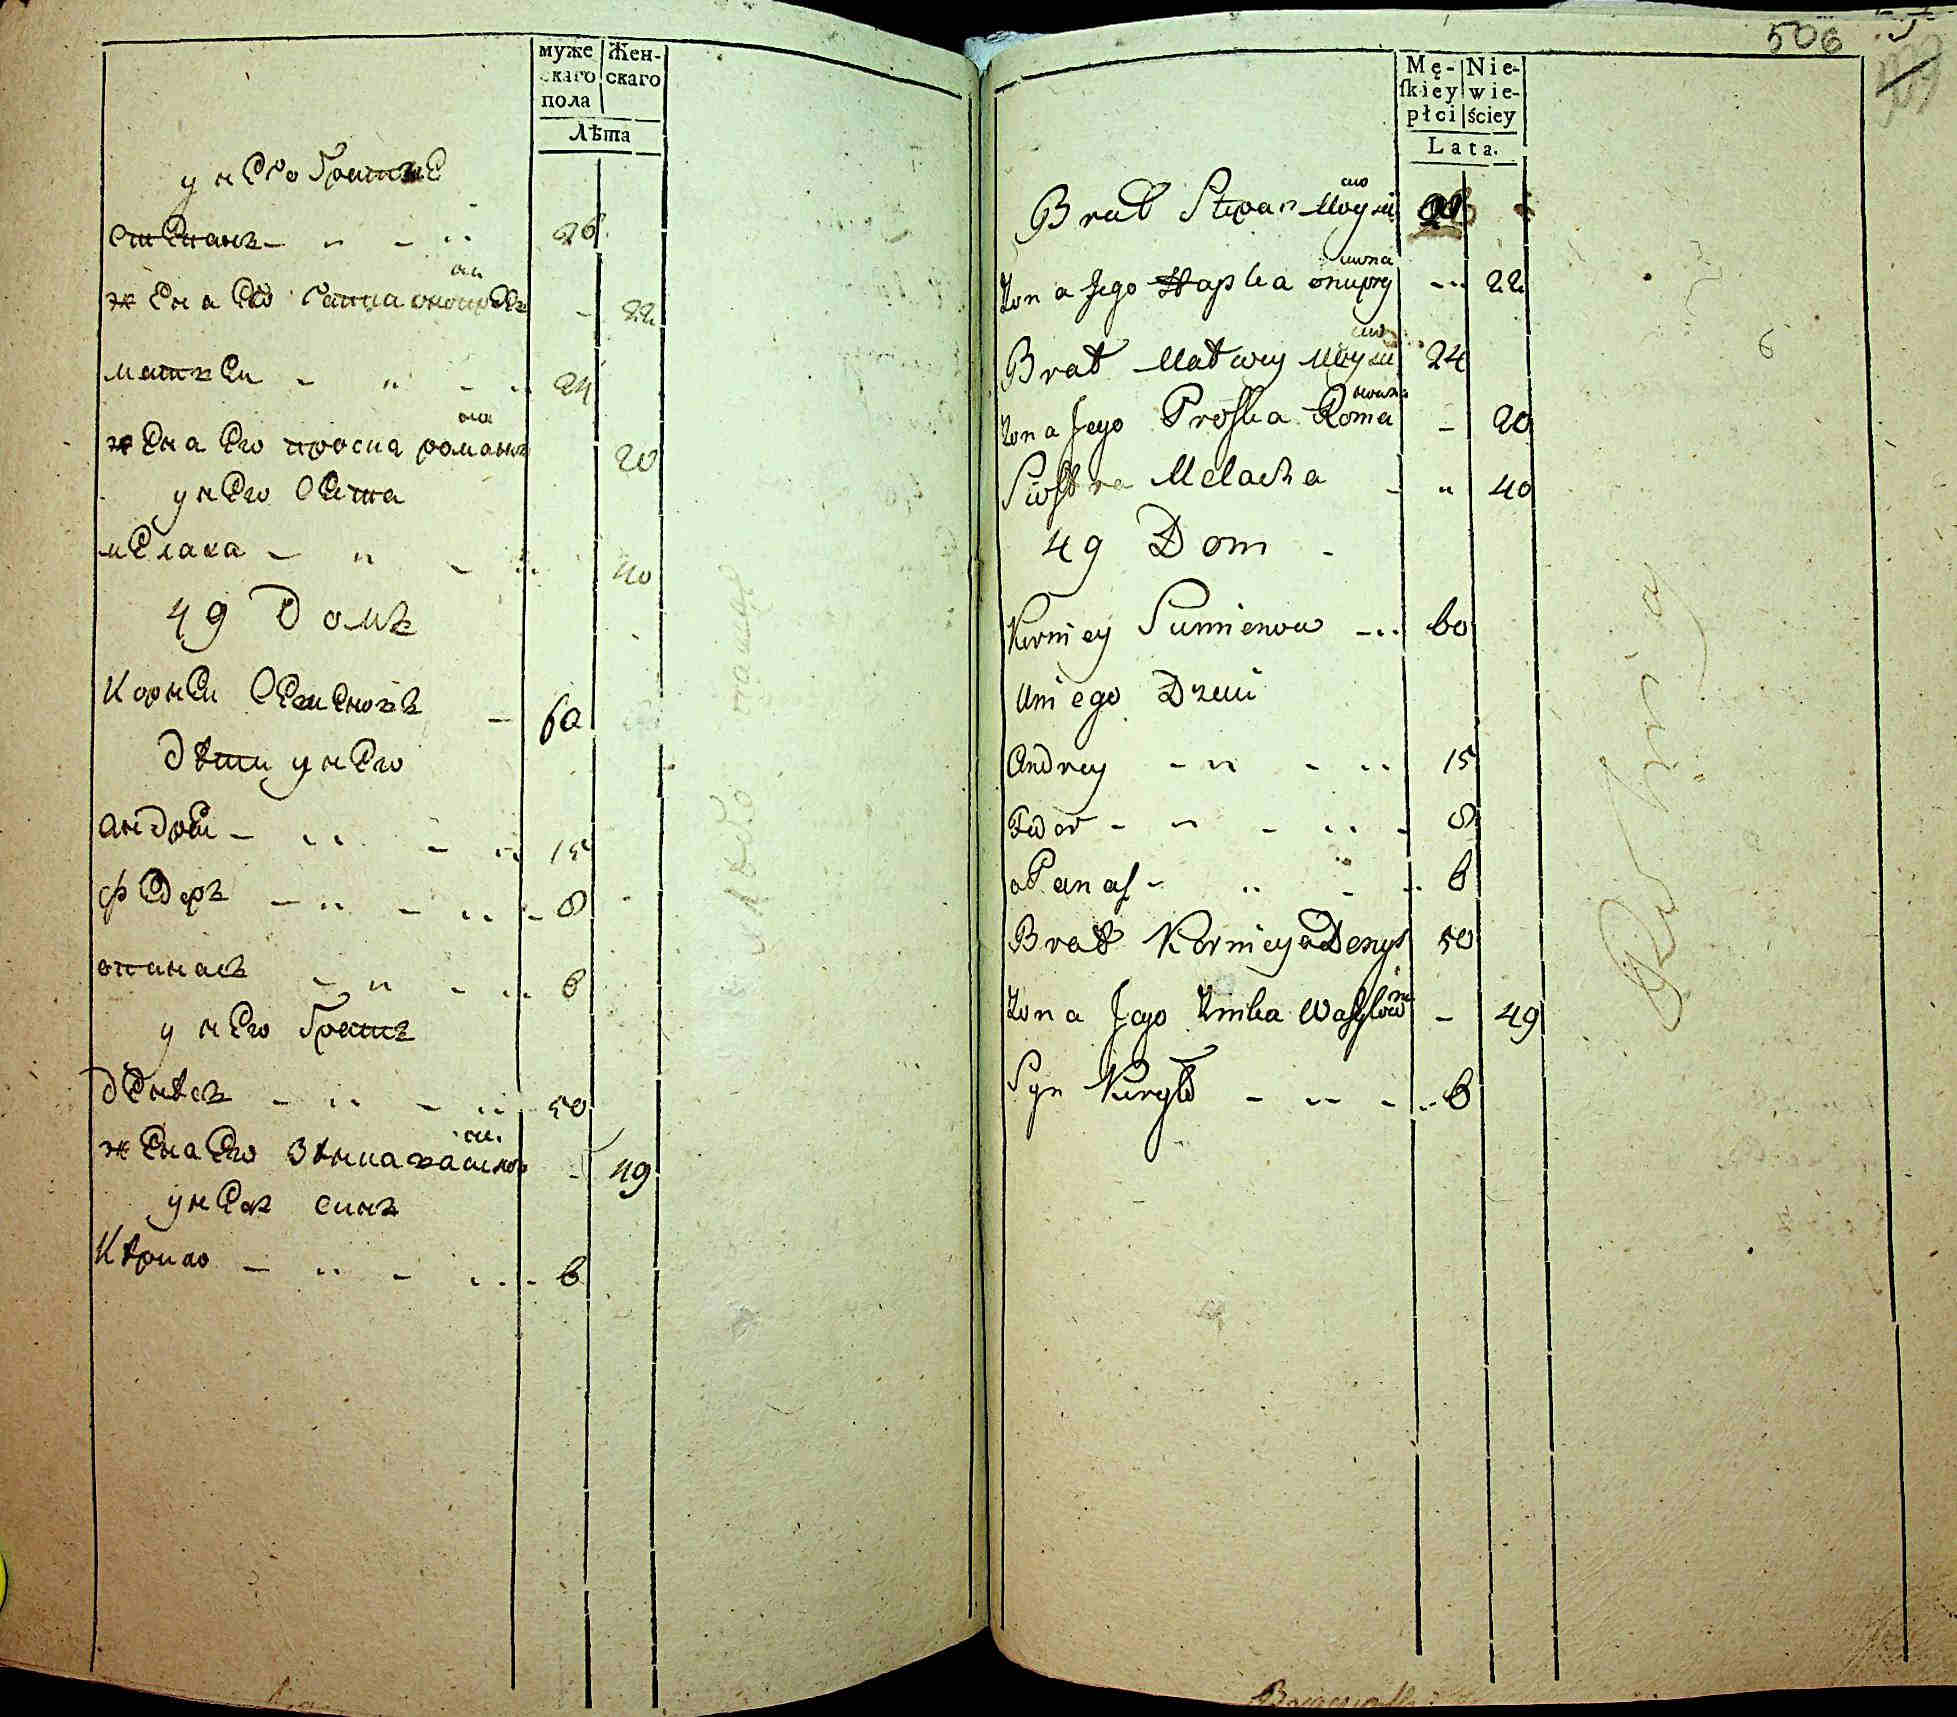 муже Жен-
скаго скаго
пола
Лѣта
у него братъе
степанъ 26
жена его гапка онопреева 22
матвеи 24
жена его проска романова 20
у него сестра
мелаха 40
49 домъ
корнеи семеновъ 60
дѣти у него
андреи 15
федеръ 8
опанасъ 6
у него братъ
денѣсъ 50
жена его зѣнка 49
у нее синъ
кѣрило 6
506
Mę- Nie-
ſkiey wie-
płci ściey
Lata.
Brat Stepan Moysiiowo
Zona Jego Hapka onupryiowna 22
Brat Matwey Moysiiowo 24
Zona Jego Proſka Romanowna 20
Siostra Melacha 40
49 Dom
Korniey Simienow 60
Uniego Dzeci
Andrey 15
Fedor 8
oPanaſ 6
Brat Kornieya Denys 50
Zona Jego Zinka Waſylowna 49
Syn Kiryło 6
6